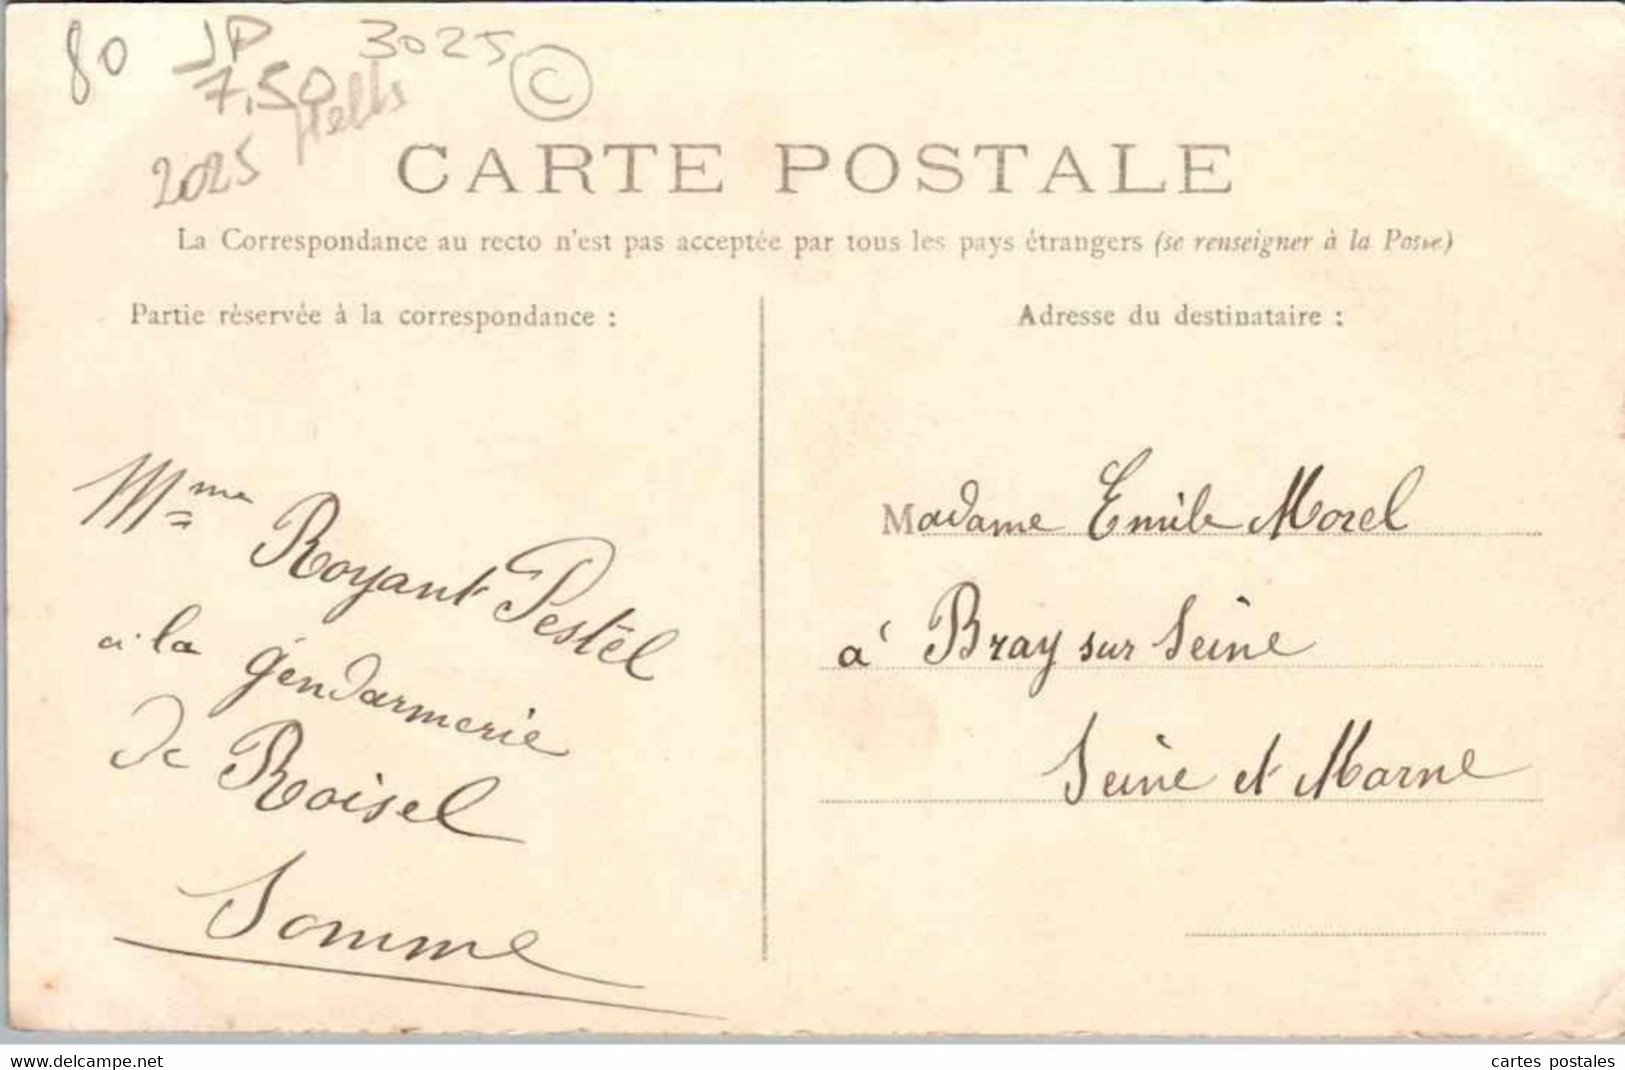 80 JP 3025 ©
7.50
2025
CARTE POSTALE
La Correspondance au recto n'est pas acceptée par tous les pays étrangers (se renseigner à la Poste)
Partie réservée à la correspondance :
Adresse du destinataire :
Mme Royant-Pestel
à la gendarmerie
de Roisel
Somme
Madame Emile Morel
à Bray sur Seine
Seine et Marne
www.delcampe.net
cartes postales